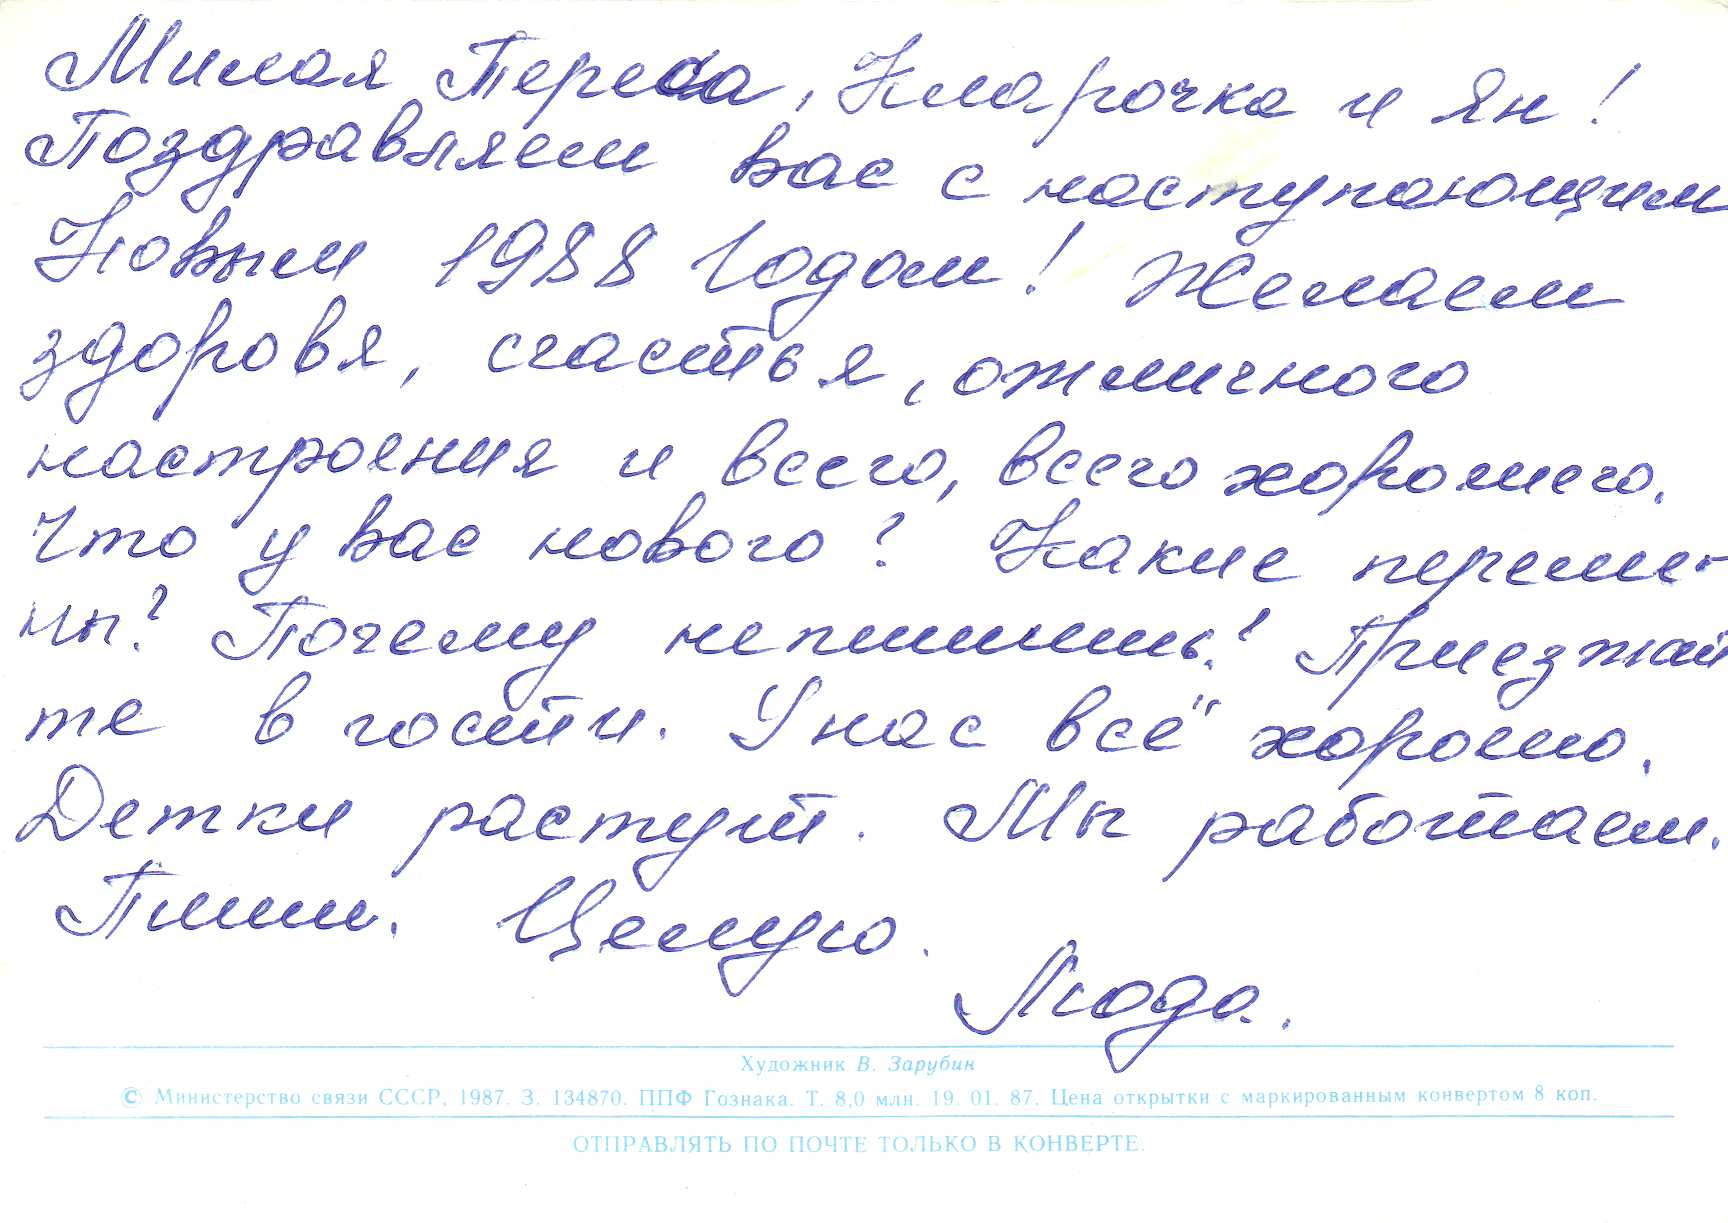 Милая Тереса, Кларочка и Ян!
Поздравляем вас с наступающим
Новым 1988 Годом! Желаем
здоровя, счастья, отличного
настроения и всего, всего хорошего.
Что у вас нового? Какие переме-
ны? Почему не пишишь? Приезжай
те в гости. У нас всё хорошо.
Детки растут. Мы работаем.
Пиши. Целую.
Люда.
Художник В. Зарубин
© Министерство связи СССР, 1987. З. 134870. ППФ Гознака. Т. 8,0 млн. 19. 01. 87. Цена открытки с маркированным конвертом 8 коп.
ОТПРАВЛЯТЬ ПО ПОЧТЕ ТОЛЬКО В КОНВЕРТЕ.